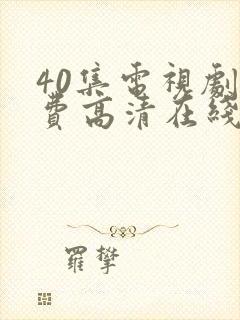 40集電視劇
費高清在綫
羅攀